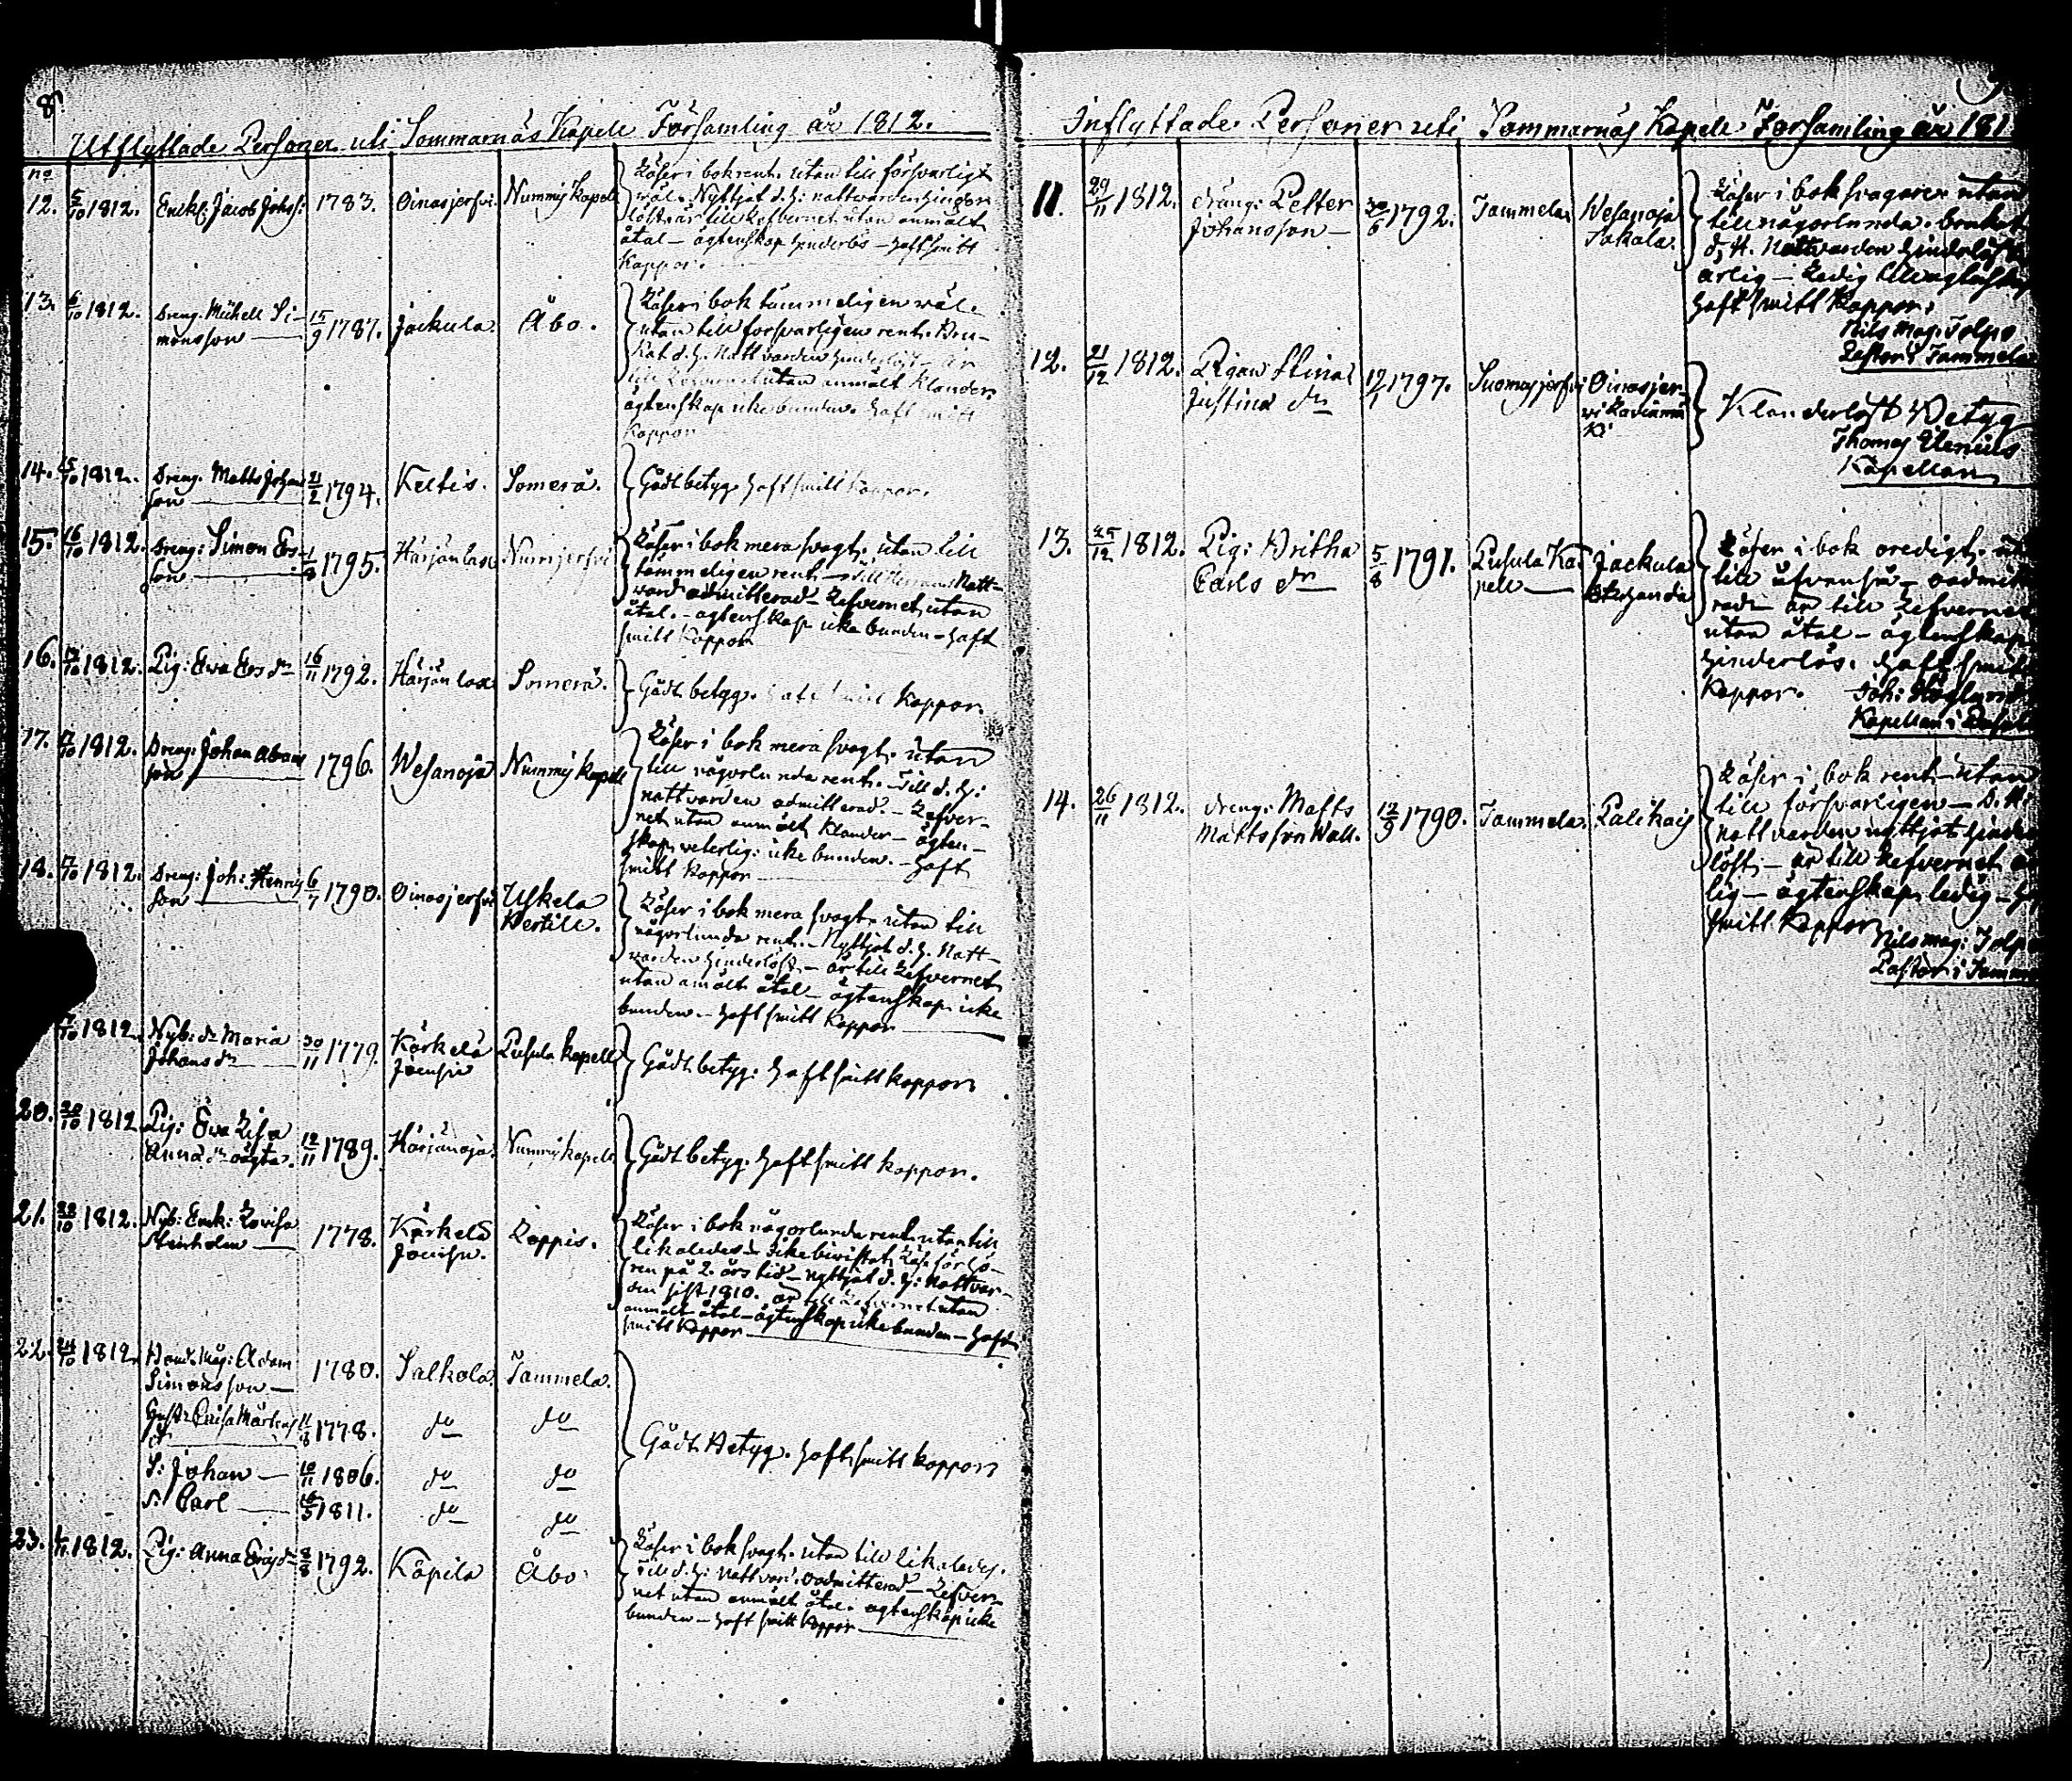 8.
Utflyttade Personer uti Sommarnäs Kapell Församling år 1812.
no
12. 5/10 1812. Enkl: Jacob Johss: 1783. Oinasjerfvi Nummis Kapell
Läser i bok rent. utan till försvarligt
wäl. Nyttjat d. H: nattwarden
löst är till Lefvernet utan anmält
åtal – ägtenskap hinderlös – haft smitt
Koppor.
13. 6/10 1812. Dreng. Michell Si-
monsson 15/9 1787. Jackula Åbo.
Läser i bok tammeligen wäl.
utan till försvarligen rent. Bru-
kat d. H. Nattvarden hinderlöst – är
till Lefvernet utan anmält klander.
ägtenskap icke bunden. haft smitt
Koppor
14. 15/10 1812. Dreng. Matts Johans
son 21/2 1794. Keltis. Somerä.
Godt betyg. haft smitt Koppor.
15. 16/10 1812. Dreng: Simon Ers-
son 1/8 1795. Härjänlax Nurmijerfvi
Läser i bok mera svagt. utan till
tammeligen rent – till Herrans Natt-
vard admitterad – Lefvernet utan
åtal. – ägtenskap icke bunden – haft
smitt Koppor
16. 17/10 1812. Pig: Ewa Ers dr 16/11 1792. Härjänlax Somerä.
Godt betyg. haft smitt Koppor.
17. 17/10 1812. Dreng: Johan Abram
son 1796. Wesanoja Nummis Kapell
Läser i bok mera svagt. utan
till någorlunda rent. – Till d. H:
nattvarden admitterad. – Lefver-
net utan anmält klander – ägten-
skap veterlig: icke bunden. – haft
smitt Koppor
18. 17/10 1812. Dreng: Joh: Henrics
son 6/7 1790. Oinasjerfvi Uskela
Bertill.
Läser i bok mera svagt. utan till
någorlunda rent. – Nyttjat d. H. Natt-
varden hinderlöst. – är till Lefvernet
utan anmält åtal – ägtenskap icke
bunden. – haft smitt Koppor
1812. Nyb: dr Maria
Johans dr 30/11 1779. Kärkelä
Joensu Pusula Kapell
Godt betyg. haft smitt koppor
20. 20/10 1812 Pig: Ewa Lisa
Anna dr oägta. 12/11 1789. Härjänoja Nummis Kapell
Godt betyg. haft smitt koppor.
21. 22/10 1812. Nyb: Enk: Lovisa
Stenholm 1778. Kärkelä
Joensu. Loppis.
Läser i bok någorlunda rent. utan till
likaledes – Icke bivistat Läseförhö-
ren på 2. års tid – nyttjat d. H: Nattvar-
den sist 1810. är till Lefvernet utan
anmält åtal – ägtenskap icke bunden – haft
smitt Koppor
22. 24/10 1812. Bond. Måg: Adam
Simonsson 1780. Salkola. Tammela.
Hust: Caisa Mårtens
dr 11/8 1778. do do
S: Johan 10/11 1806. do do
S: Carl 16/5 1811. do do
Godt Betyg. haft smitt koppor
23. 1812. Pig: Anna Erics dr 8/8 1792. Käpilä Åbo.
Läser i bok svagt. utan till likaledes.
Till d. H: Nattvard: oadmitterad – Lefver-
net utan anmält åtal. ägtenskap icke
bunden – haft smitt Koppor
Inflyttade Personer uti Sommarnäs Kapell Församling år 181
11. 29/11 1812. dräng: Petter
Johansson 30/6 1792. Tammela Wesanoja
Sakala.
Läser i bok svagare utan
till någorlunda. brukat
d. H. Nattvarden hinderlöst
ärlig – Ledig till ägtenskap
haft smitt Koppor.
Nils Mag: Tolpo
Pastor i Tammela
12. 21/12 1812. Pigan Stina
Justina dr 12/1 1797. Suomusjerfvi Oinasjer-
vi
Klanderlöst Betyg
Thomas Elenius
Kapellan
13. 25/12 1812. Pig: Britha
Carls dr 5/8 1791. Pusula Ka-
pell Jackula
Läser i bok oredigt. ut
till äfvenså – oadmitte
rad – är till Lefvernet
utan åtal – ägtenskap
hinderlös. haft smitt
Koppor. Joh: Höglund
Kapellan i
14. 26/11 1812. dreng: Matts
Mattsson Wall. 12/9 1790. Tammela. Palikais
Läser i bok rent – utan
till försvarligen – d. H.
nattvarden nyttjat hinder
löst – är till Lefvernet är
lig – ägtenskap ledig – ha
smitt Koppor
Nils Mag: Tolpo
Pastor i Tamm